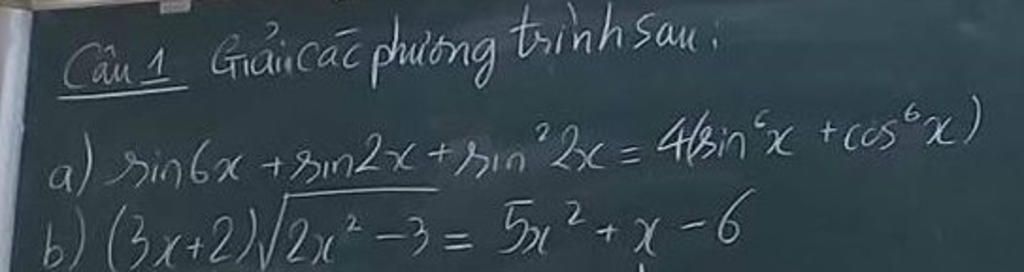 Câu 1 Giải các phương trình sau:
a) sin6x + sin2x + sin²2x = 4(sin⁶x + cos⁶x)
b) (3x+2)√(2x² - 3) = 5x² + x - 6